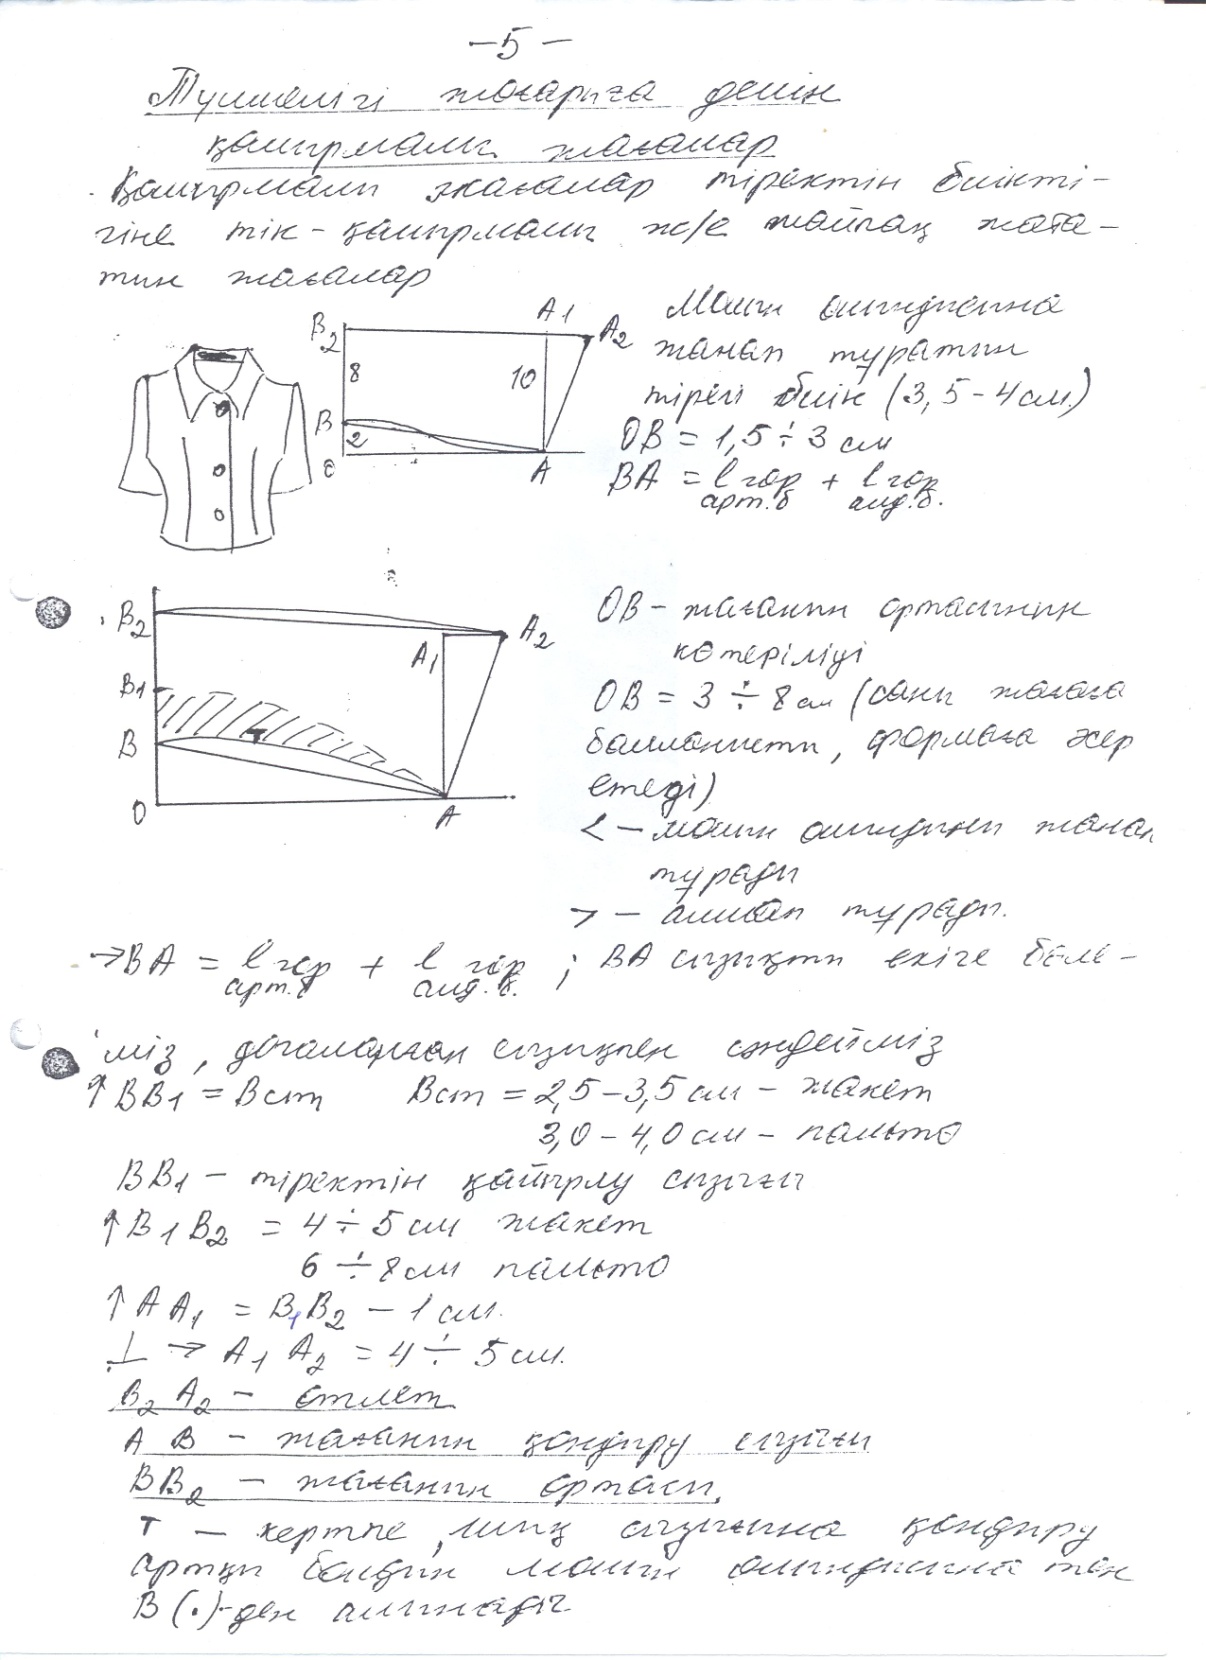 -5-
Түймелігі жоғарыға дейін
қайырмалы жағалар
Қайырмалы жағалар тіректін биікті-
гіне тік-қайырмалы ж/е жайпақ жата-
тын жағалар
В2 А1 А2
8 10
В 2
0 А
Мойын ойындысына
жанап туратын
тірегі биік (3,5-4см.)
ОВ = 1,5 ÷ 3 см
ВА = l гор + l гор
арт.б алд.б.
В2 А2
А1
В1
В
О А
ОВ - жағанын ортасынын
көтерілуі
ОВ = 3 ÷ 8 см (саны жағаға
байланысты, формаға әсер
етеді)
< - мойын ойындыны жанап
турады
> - алшақ турады.
→ ВА = l гор + l гор ; ВА сызықты екіге бөле-
арт.б алд.б.
міз, доғаланған сызықпен сәндейміз
↑ ВВ1 = Вст Вст = 2,5-3,5 см - жакет
3,0 - 4,0 см - пальто
ВВ1 - тіректін қайырлу сызығы
↑ В1 В2 = 4 ÷ 5 см жакет
6 ÷ 8 см пальто
↑ А А1 = В1В2 - 1 см.
⊥ → А1 А2 = 4 ÷ 5 см.
В2 А2 - отлет
А В - жағанын қондыру сызығы
ВВ2 - жағанын ортасы.
т - кертпе, иық сызығына қондыру
артқы бойдын мойын ойындысына тен
В (.)-ден алынады